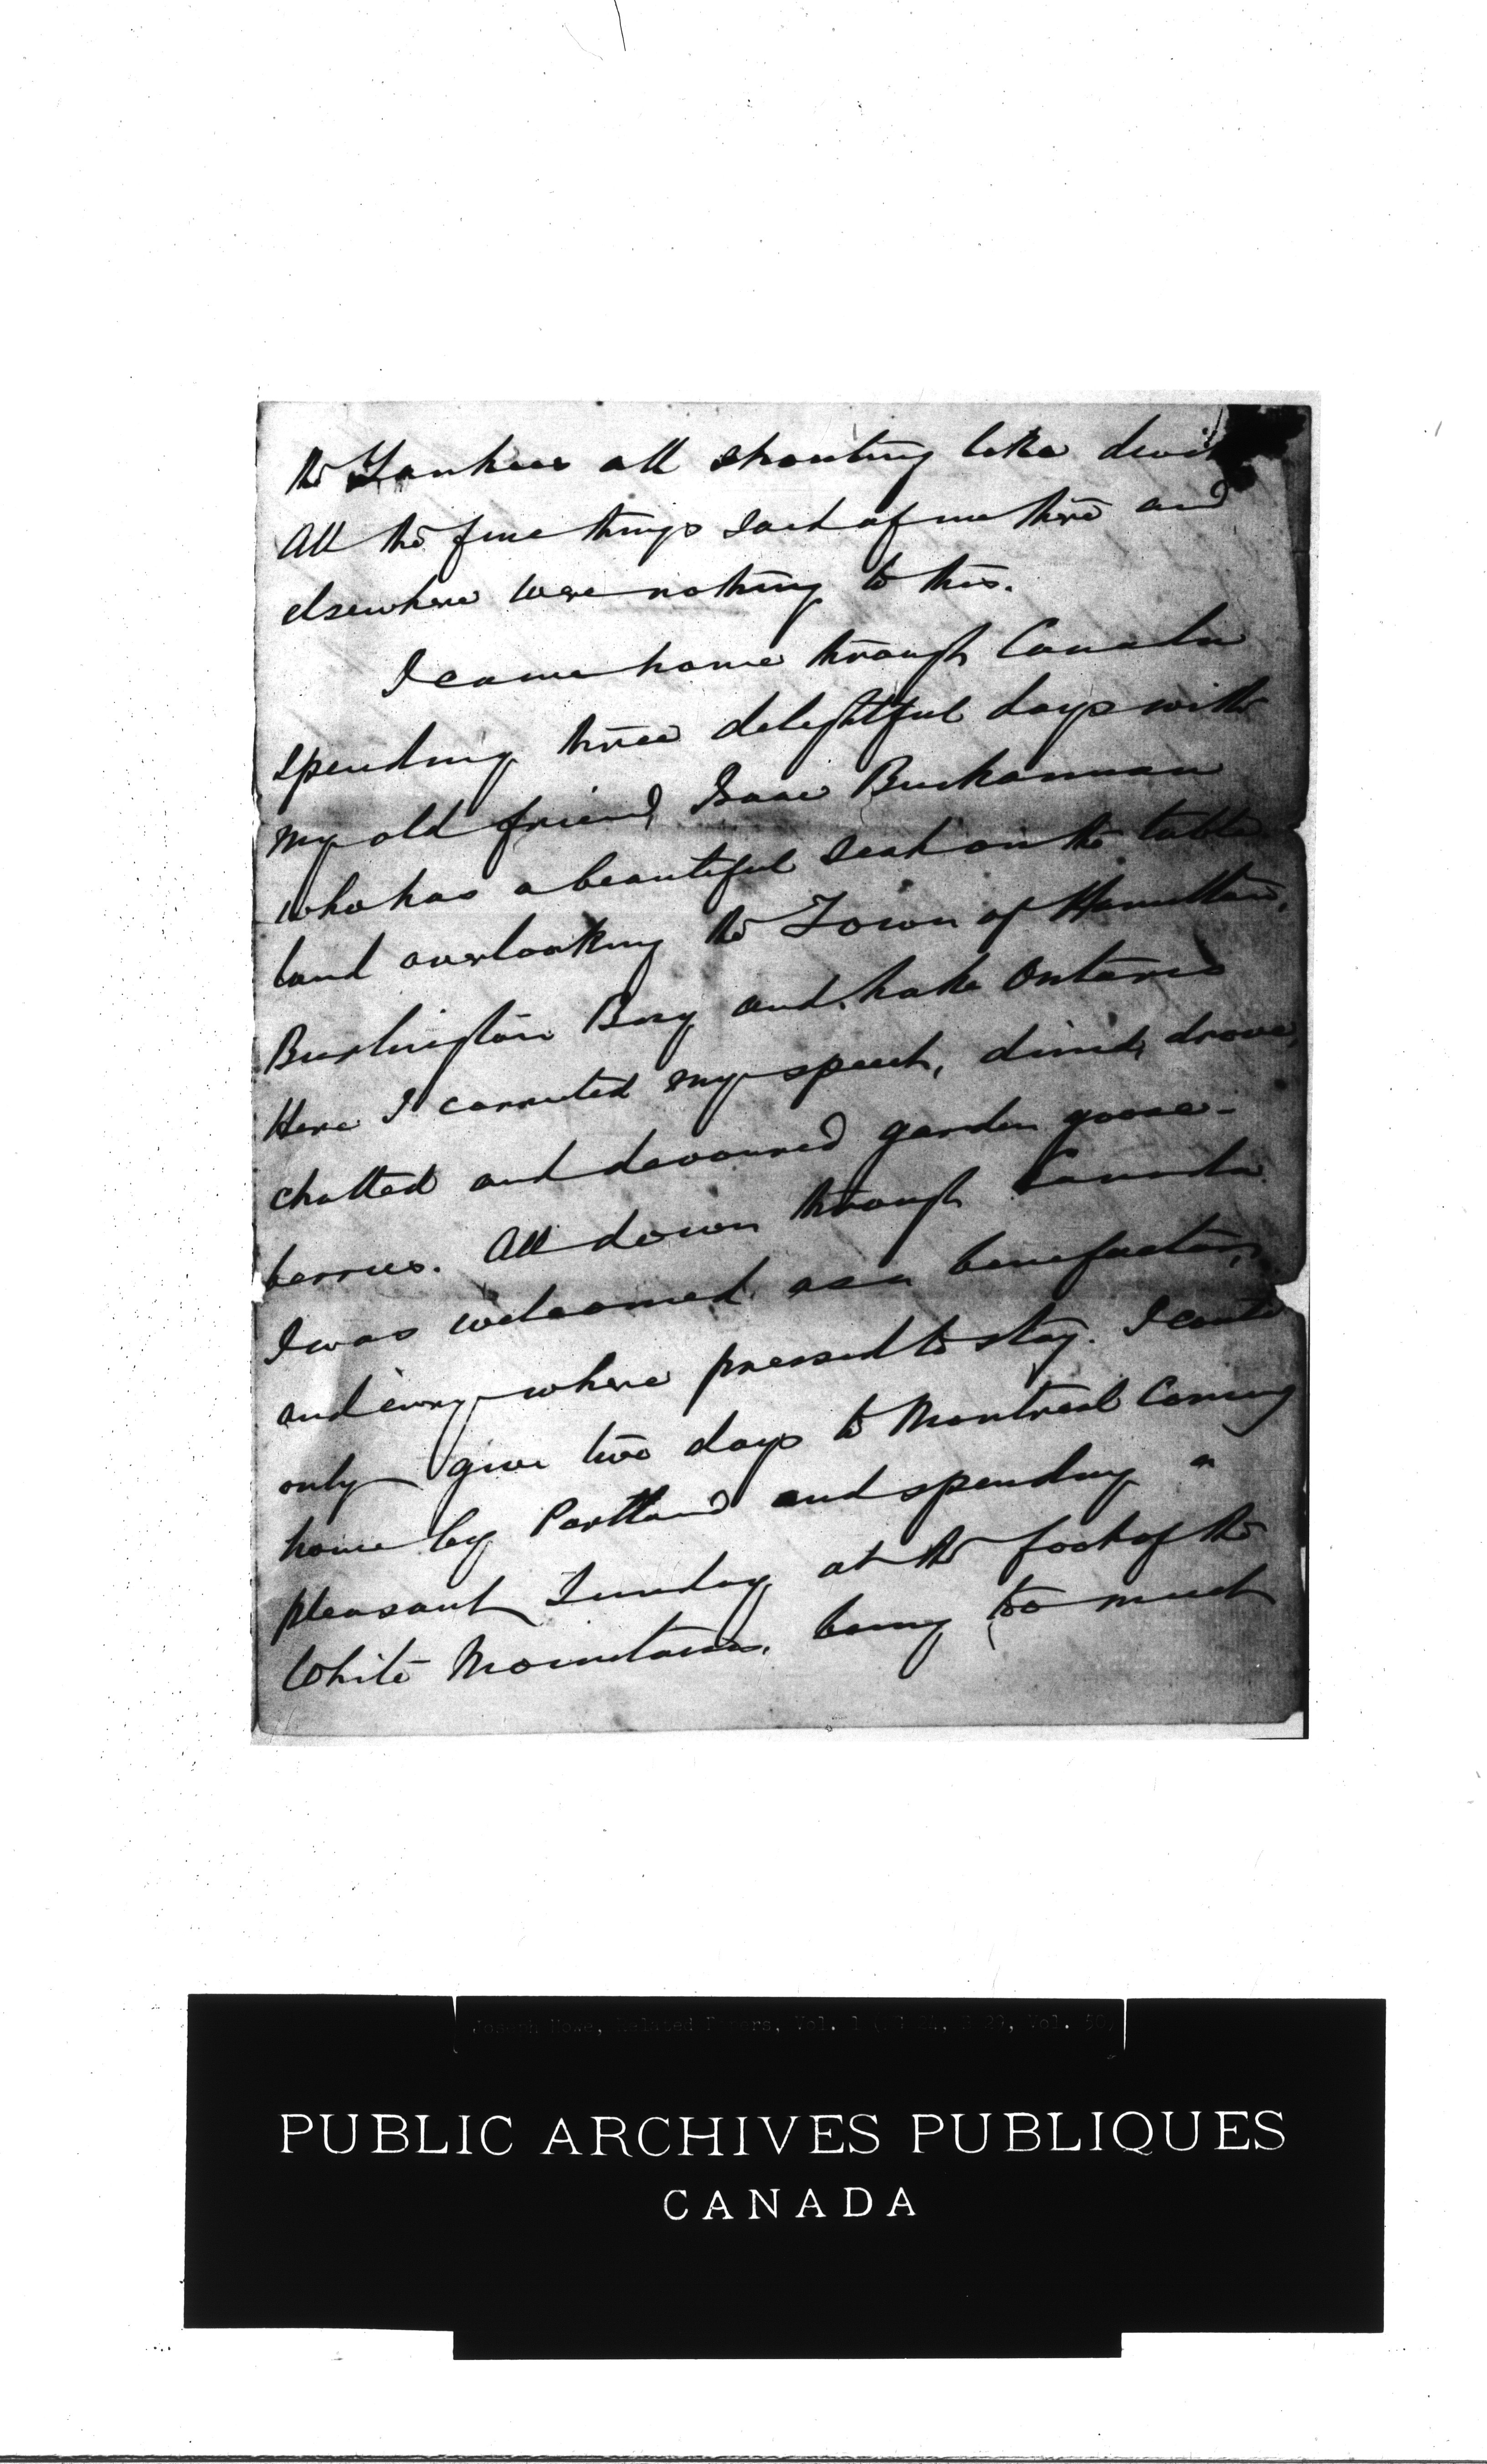 the Yankees all shouting like devils
All the fine things said of me there and
elsewhere were nothing to this.
I came home through Canada
spending three delightful days with
my old friend Isaac Buchannan
who has a beautiful seat on the table
land overlooking the Town of Hamilton,
Burlington Bay and Lake Ontario
Here I corrected my speech, dined, drove,
chatted and devoured garden goose-
berries. All down through Canada
I was welcomed as a benefactor,
and every where pressed to stay. I could
only give two days to Montreal coming
home by Portland and spending a
pleasant Sunday at the foot of the
White Mountains, being too much
Joseph Howe, Related Papers, Vol. 1 (MG 24, B 29, Vol. 50)
PUBLIC ARCHIVES PUBLIQUES
CANADA